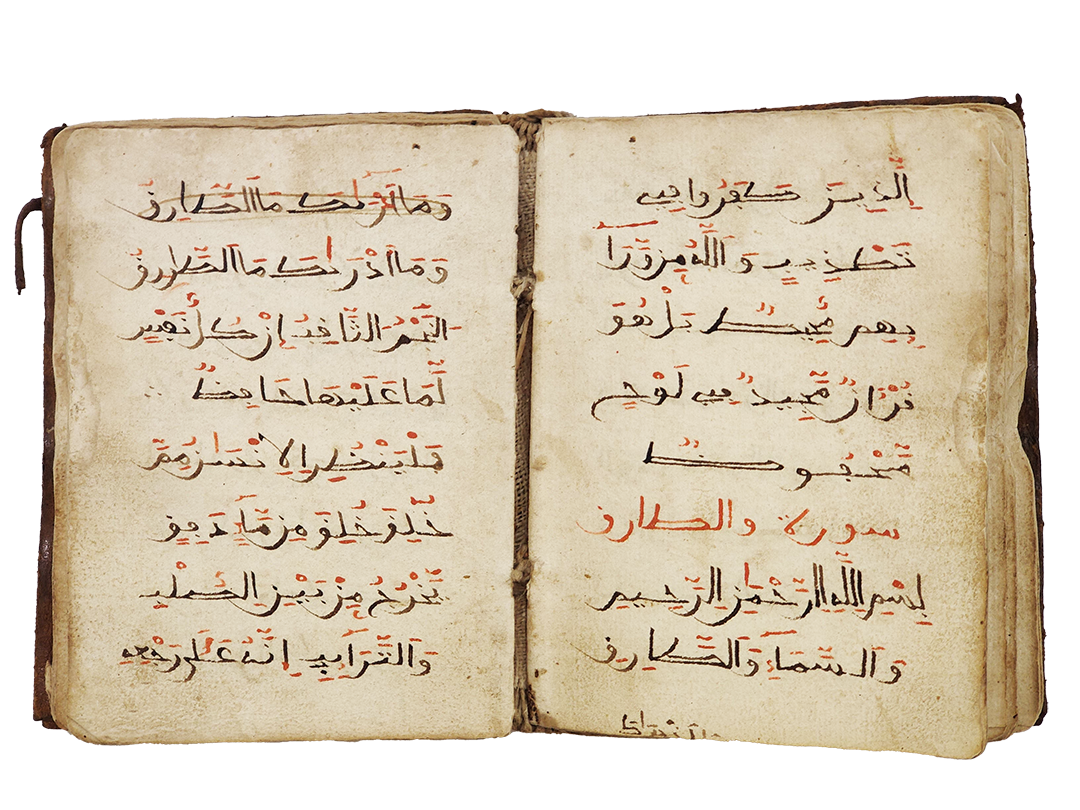 الَّذِينَ كَفَرُوا فِي
تَكْذِيبٍ وَاللَّهُ مِن وَرَآ
ئِهِم مُّحِيطٌ بَلْ هُوَ
قُرْءَانٌ مَّجِيدٌ فِي لَوْحٍ
مَّحْفُوظٍ
سورة والطارق
بِسْمِ اللَّهِ الرَّحْمَٰنِ الرَّحِيمِ
وَالسَّمَاءِ وَالطَّارِقِ
وَمَا أَدْرَىٰكَ مَا الطَّارِقُ
وَمَا أَدْرَىٰكَ مَا الطَّارِقُ
النَّجْمُ الثَّاقِبُ إِنْ كُلُّ نَفْسٍ
لَّمَا عَلَيْهَا حَافِظٌ
فَلْيَنْظُرِ الْإِنْسَٰنُ مِمَّ
خُلِقَ خُلِقَ مِن مَّاءٍ دَٰفِقٍ
يَخْرُجُ مِنْ بَيْنِ الصُّلْبِ
وَالتَّرَائِبِ إِنَّهُ عَلَىٰ رَجْعِهِ